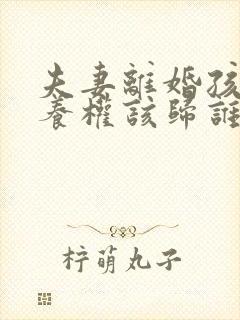 夫妻離婚孩
養權該歸誰
柠萌丸子